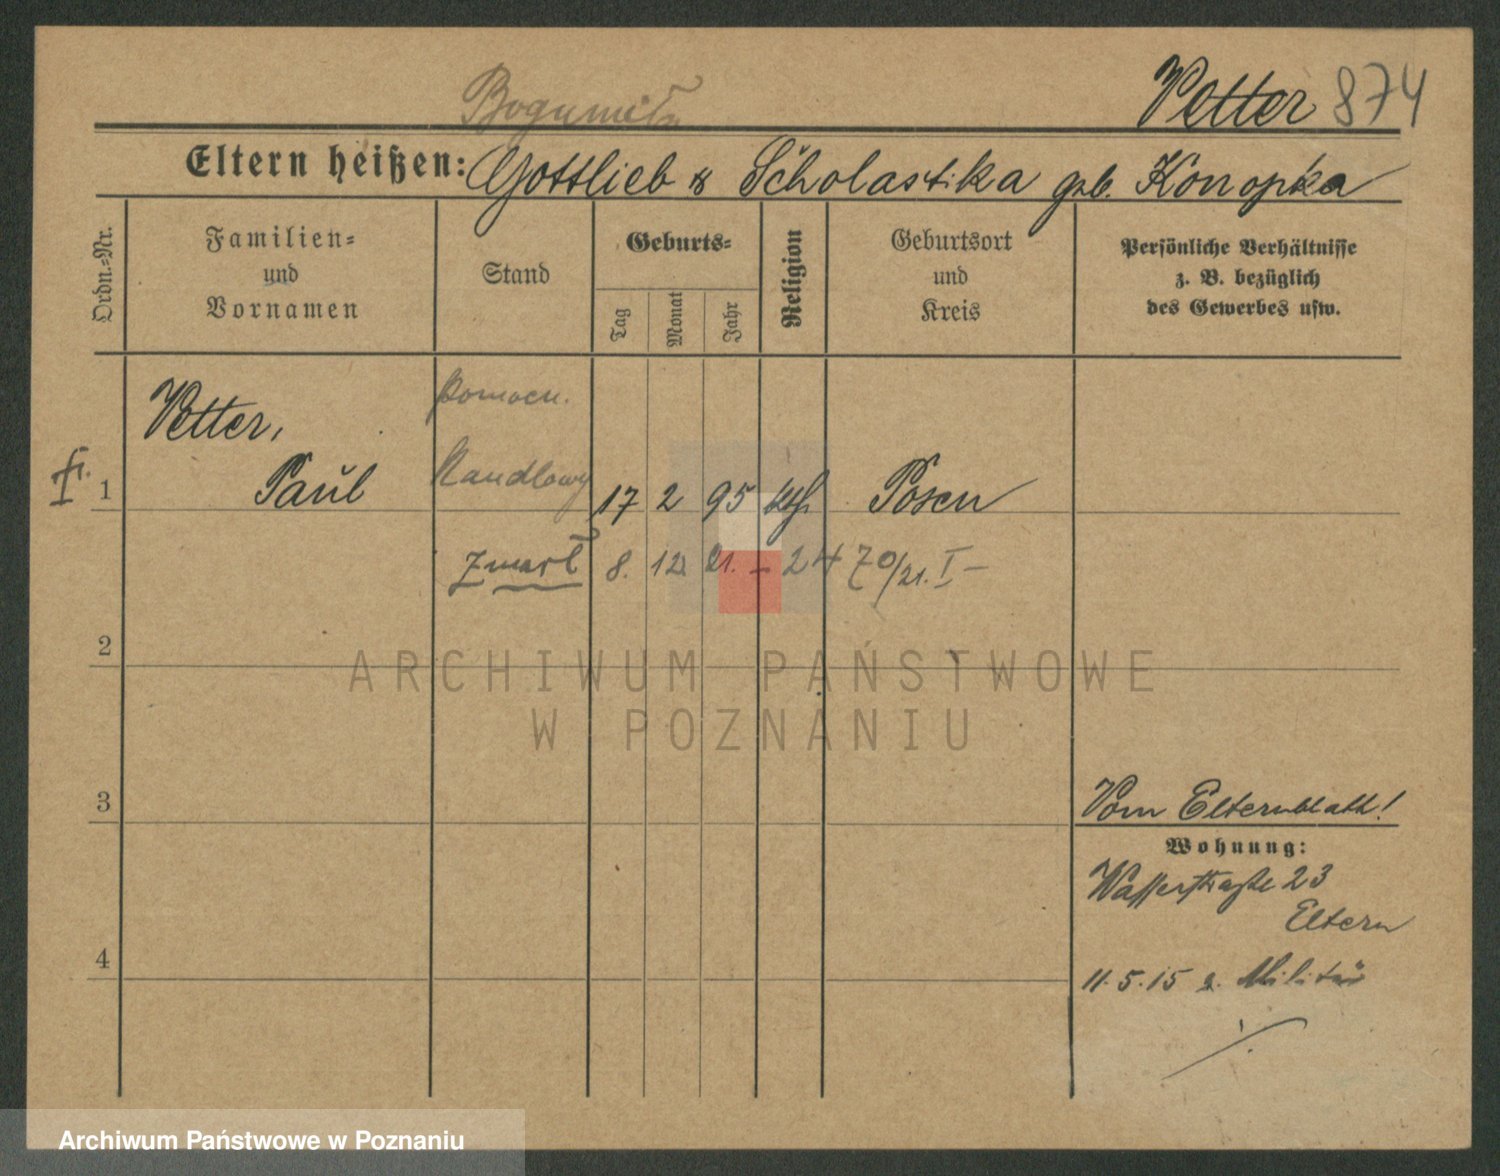 Vetter 874
Bogumiła
Eltern heißen: Gottlieb & Scholastika geb. Konopka
Ordn.-Nr.
Familien-
und
Vornamen
Stand
Geburts-
Tag
Monat
Jahr
Religion
Geburtsort
und
Kreis
Persönliche Verhältnisse
z. B. bezüglich
des Gewerbes usw.
Vetter, pomocn.
1 Paul Handlowy 17 2 95 kth Posen
zmarł 8. 12 21. – 2470/21. I –
2
ARCHIWUM PAŃSTWOWE
W POZNANIU
3
Vom Elternblatt!
Wohnung:
Wasserstraße 23
Eltern
4
11.5.15 z. Militär
Archiwum Państwowe w Poznaniu